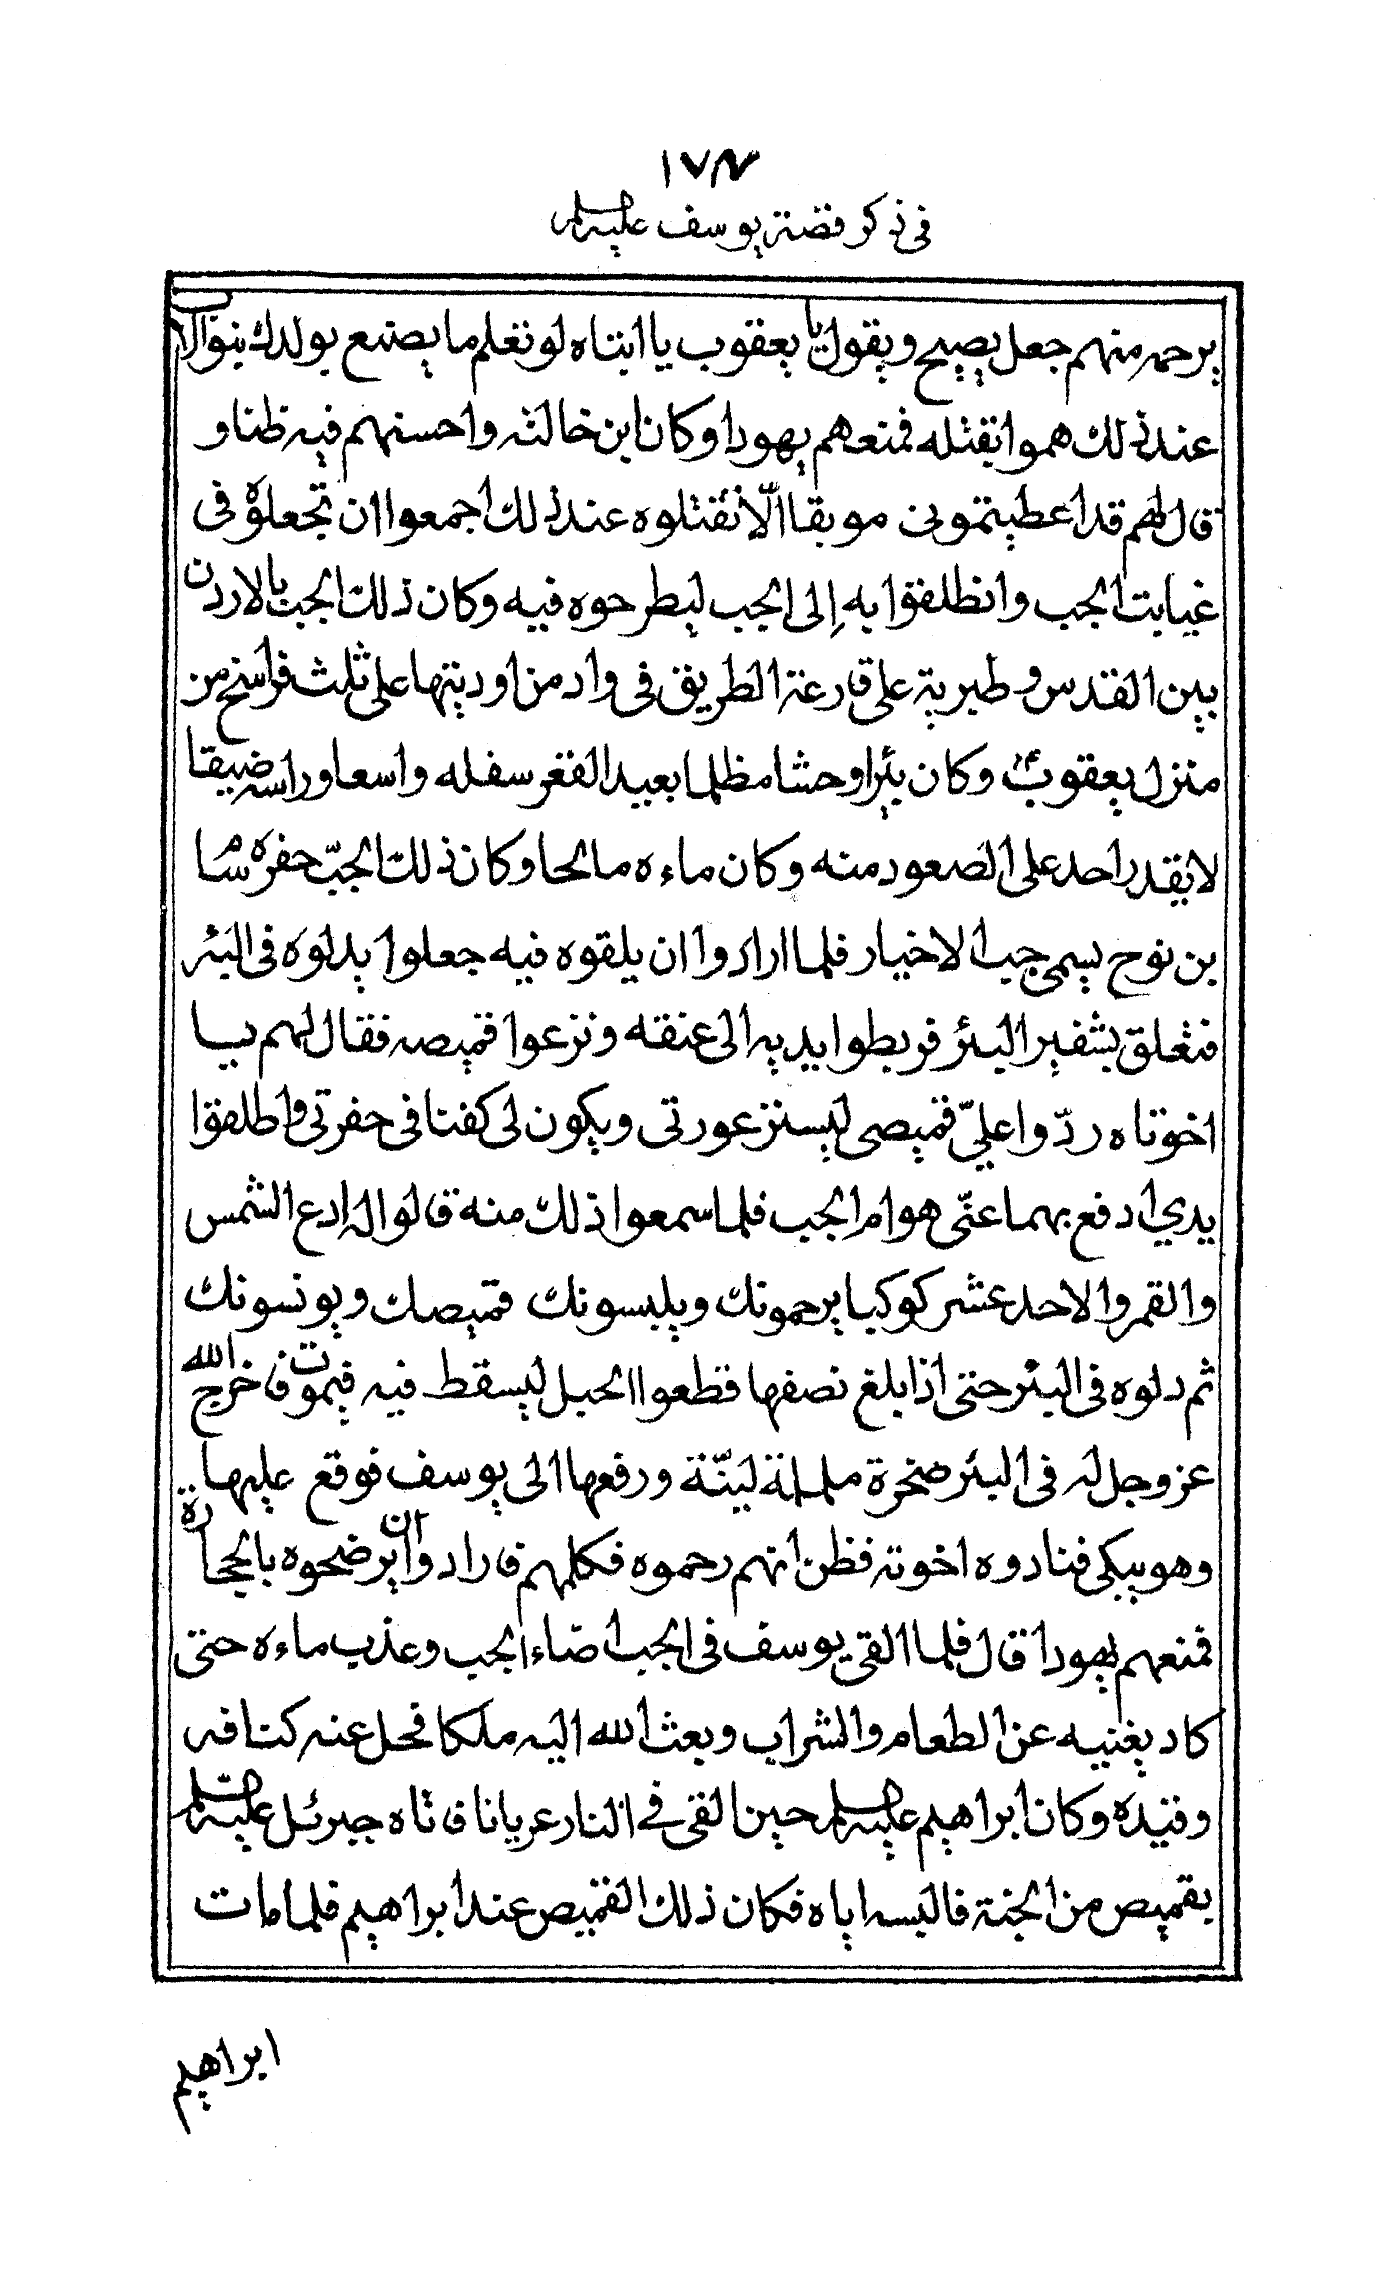 ١٧٣
في ذكر قصة يوسف عليه السلم
يرحمه منهم جعل يصيح ويقول يا يعقوب يا ابتاه لو تعلم ما يصنع بولدك بنو الاب
عند ذلك هموا بقتله فمنعهم يهودا وكان ابن خالته واحسنهم فيه ظنا و
قال لهم قد اعطيتموني موثقا الّا تقتلوه عند ذلك اجمعوا ان تجعلوه في
غيابت الجب وانطلقوا به إلى الجب ليطرحوه فيه وكان ذلك الجب بالاردن
بين القدس وطبرية على قارعة الطريق في واد من اوديتها على ثلث فراسخ من
منزل يعقوب ع وكان بئرا وحشا مظلما بعيد القعر سفله واسعا وراسه ضيقا
لا يقدر احد على الصعود منه وكان ماءه مالحا وكان ذلك الجبّ حفره سام
بن نوح يسمى جب الاخيار فلما ارادوا ان يلقوه فيه جعلوا يدلوه في البئر
فتعلق بشفير البئر فربطوا يديه الى عنقه ونزعوا قميصه فقال لهم يا
اخوتاه ردّوا عليّ قميصي ليستر عورتي ويكون لي كفنا في حفرتي واطلقوا
يدي ادفع بهما عنّي هوام الجب فلما سمعوا ذلك منه قالوا له ادع الشمس
والقمر والاحد عشر كوكبا يرحمونك ويلبسونك قميصك ويونسونك
ثم دلوه في البئر حتى اذا بلغ نصفها قطعوا الحبل ليسقط فيه فيموت فاخرج الله
عز وجل له في البئر صخرة ململمة ليّنة ورفعها الى يوسف فوقع عليها
وهو يبكي فنادوه اخوته فظن انهم رحموه فكلمهم فارادوا ان يرضحوه بالحجارة
فمنعهم يهودا قال فلما القى يوسف في الجب اضاء الجب وعذب ماءه حتى
كاد يغنيه عن الطعام والشراب وبعث الله اليه ملكا فحل عنه كتافه
وقيده وكان ابراهيم عليه السلم حين القي في النار عريانا فاتاه جبرئل عليه السلم
بقميص من الجنة فالبسه اياه فكان ذلك القميص عند ابراهيم فلما مات
ابراهيم